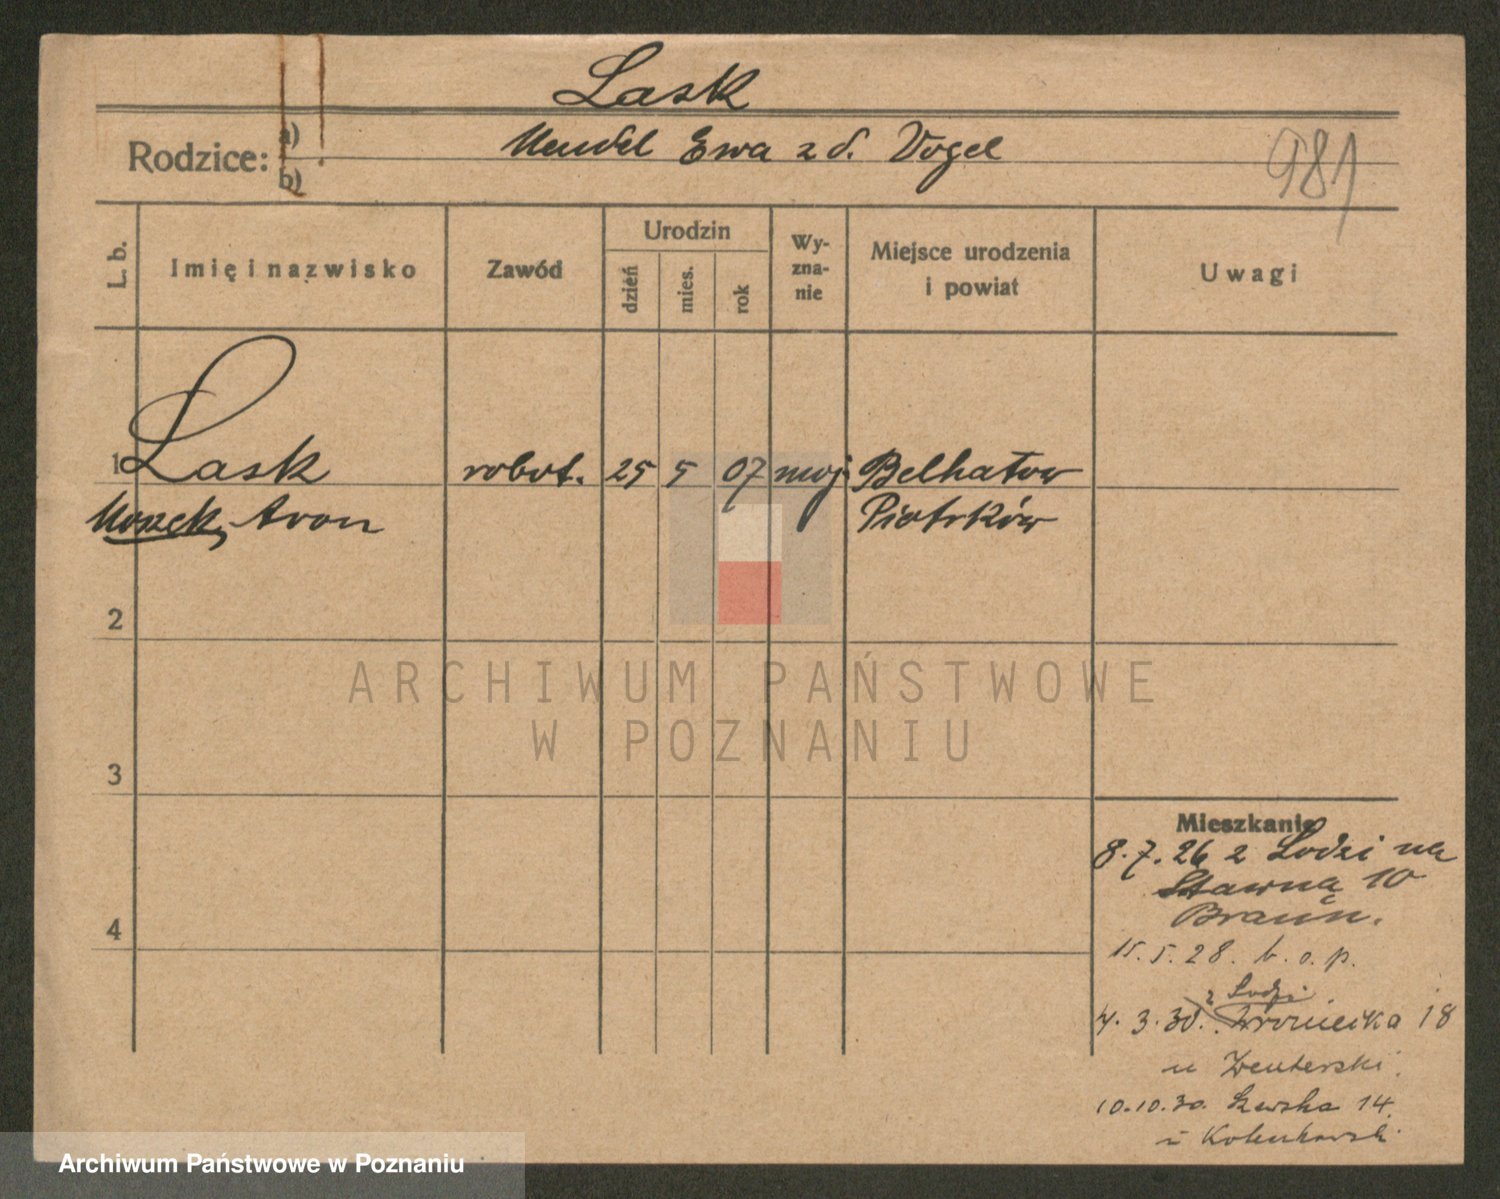 Lask
Rodzice: a) b)
Mendel Ewa z d. Vogel
981
L. b.
Imię i nazwisko
Zawód
Urodzin
dzień
mies.
rok
Wy-
zna-
nie
Miejsce urodzenia
i powiat
Uwagi
1 Lask robot. 25 5 07 moj. Belhatow
Moszek, Aron Piotrków
2
3
4
ARCHIWUM PAŃSTWOWE
W POZNANIU
Mieszkanie
8.7.26 z Lodzi na
Stawną 10
Braun.
15.5.28. b.o.p.
z Lodzi
4.3.30. Wroniecka 18
u
10.10.30. Szewska 14
u
Archiwum Państwowe w Poznaniu